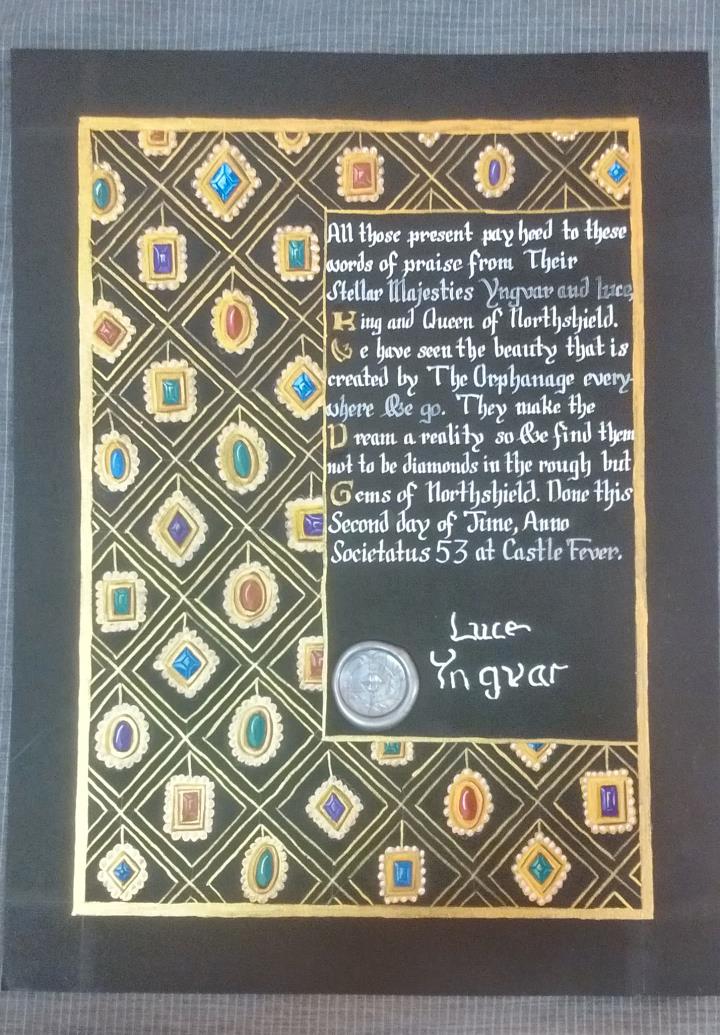 All those present pay heed to these
words of praise from Their
Stellar Majesties Yngvar and Luce,
King and Queen of Northshield.
We have seen the beauty that is
created by The Orphanage every-
where We go. They make the
Dream a reality so We find them
not to be diamonds in the rough but
Gems of Northshield. Done this
Second day of June, Anno
Societatus 53 at Castle Fever.
Luce
Yngvar